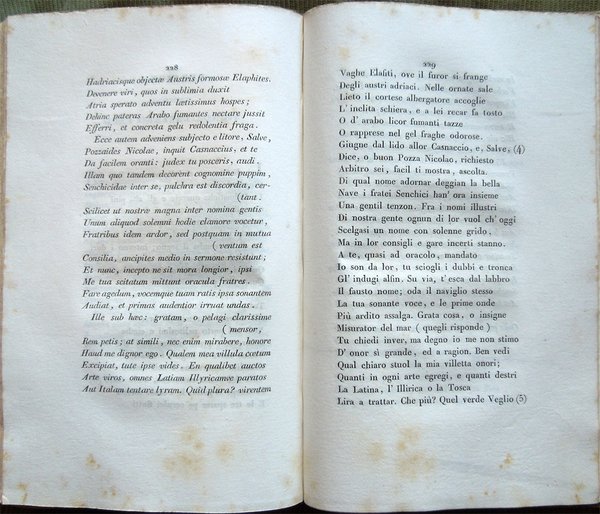 228
Hadriacisque objectæ Austris formosæ Elaphites.
Devenere viri, quos in sublimia duxit
Atria sperato adventu lætissimus hospes;
Dehinc pateras Arabo fumantes nectare jussit
Efferri, et concreta gelu redolentia fraga.
Ecce autem adveniens subjecto e litore, Salve,
Pozzaides Nicolae, inquit Casnaccius, et te
Da facilem oranti: judex tu posceris, audi.
Illam quo tandem decorent cognomine puppim,
Senchicidæ inter se, pulchra est discordia, cer-
(tant.
Scilicet ut nostræ magna inter nomina gentis
Unum aliquod solemni hodie clamore vocetur,
Fratribus idem ardor, sed postquam in mutua
(ventum est
Consilia, ancipites medio in sermone resistunt;
Et nunc, incepto ne sit mora longior, ipsi
Me tua scitatum mittunt oracula fratres.
Fare agedum, vocemque tuam ratis ipsa sonantem
Audiat, et primas audentior irruat undas.
Ille sub hæc: gratam, o pelagi clarissime
(mensor,
Rem petis; at simili, nec enim mirabere, honore
Haud me dignor ego. Qualem mea villula cœtum
Excipiat, tute ipse vides. En qualibet auctos
Arte viros, omnes Latiam Illyricamæ paratos
Aut Italam tentare lyram. Quid plura? virentem
229
Vaghe Elafiti, ove il furor si frange
Degli austri adriaci. Nelle ornate sale
Lieto il cortese albergatore accoglie
L' inclita schiera, e a lei recar fa tosto
O d' arabo licor fumanti tazze
O rapprese nel gel fraghe odorose.
Giugne dal lido allor Casnaccio, e, Salve, (4)
Dice, o buon Pozza Nicolao, richiesto
Arbitro sei, facil ti mostra, ascolta.
Di qual nome adornar deggian la bella
Nave i fratei Senchici han' ora insieme
Una gentil tenzon. Fra i nomi illustri
Di nostra gente ognun di lor vuol ch' oggi
Scelgasi un nome con solenne grido.
Ma in lor consigli e gare incerti stanno.
A te, quasi ad oracolo, mandato
Io son da lor, tu sciogli i dubbi e tronca
Gl' indugi alfin. Su via, t' esca dal labbro
Il fausto nome; oda il naviglio stesso
La tua sonante voce, e le prime onde
Più ardito assalga. Grata cosa, o insigne
Misurator del mar (quegli risponde)
Tu chiedi inver, ma degno io me non stimo
D' onor sì grande, ed a ragion. Ben vedi
Qual chiaro stuol la mia villetta onori;
Quanti in ogni arte egregi, e quanti destri
La Latina, l' Illirica o la Tosca
Lira a trattar. Che più? Quel verde Veglio (5)